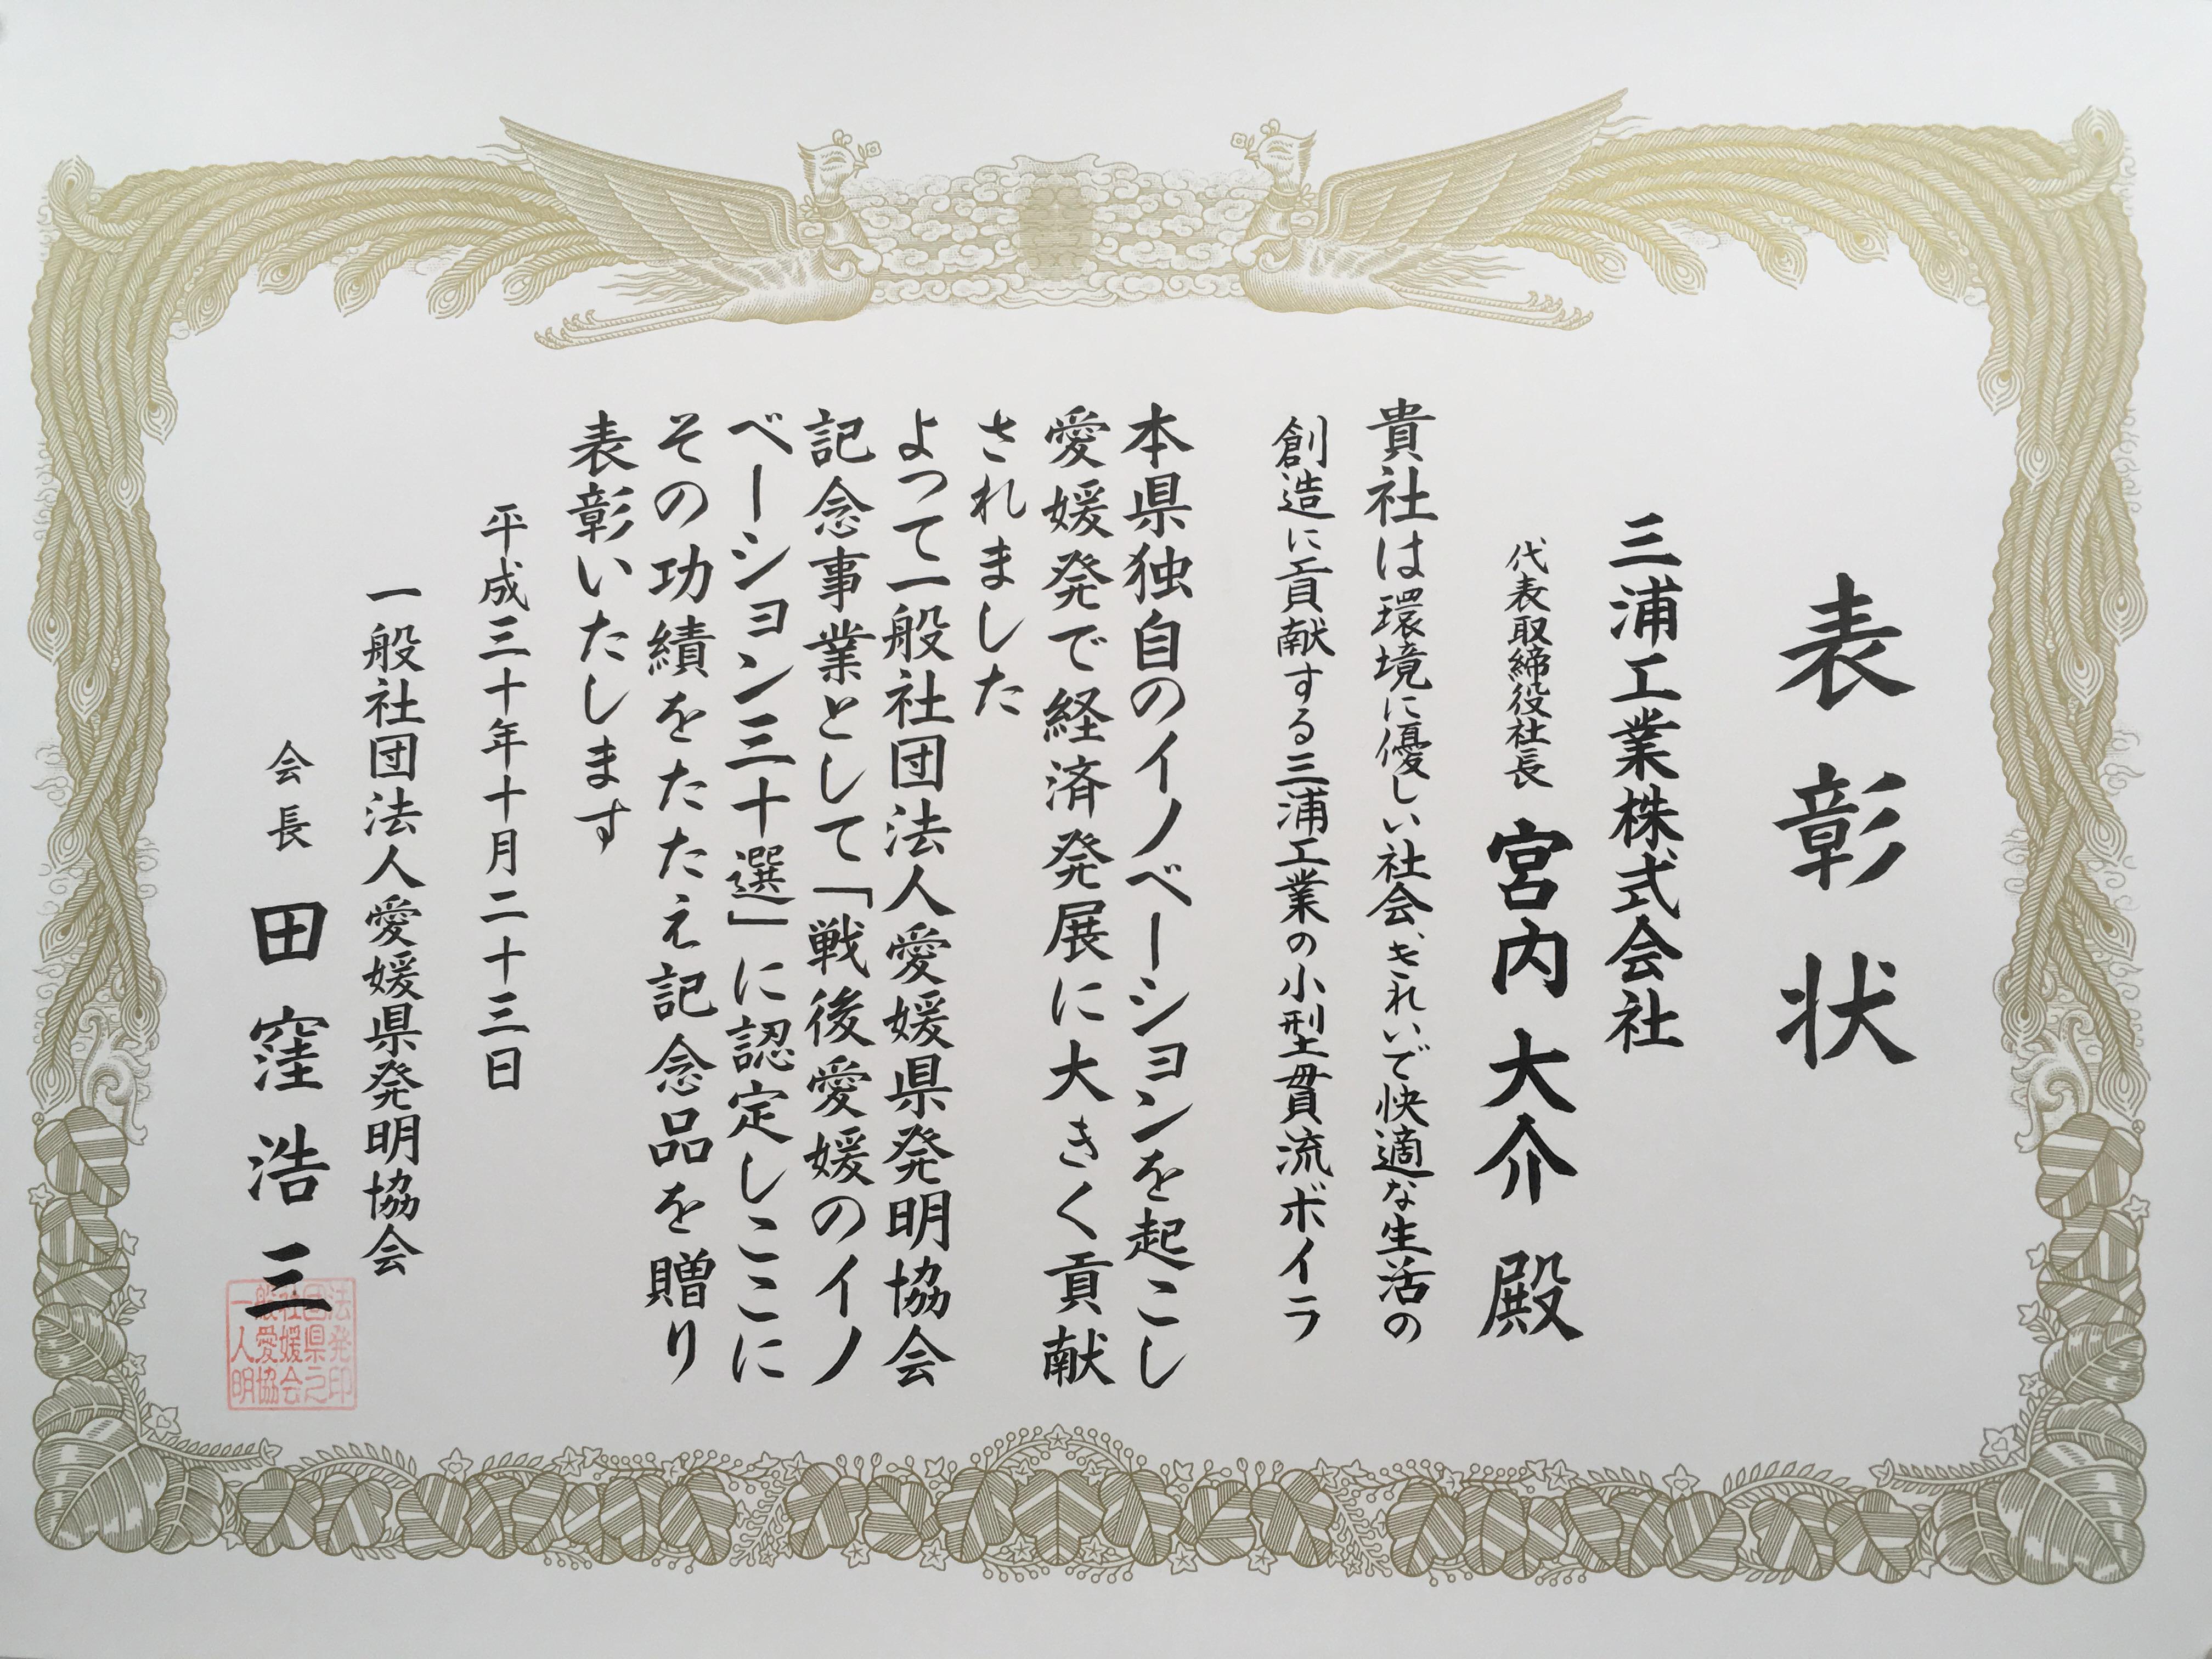 表彰状
三浦工業株式会社
代表取締役社長 宮内大介 殿
貴社は環境に優しい社会、きれいで快適な生活の
創造に貢献する三浦工業の小型貫流ボイラ
本県独自のイノベーションを起こし
愛媛発で経済発展に大きく貢献
されました
よって一般社団法人愛媛県発明協会
記念事業として「戦後愛媛のイノ
ベーション三十選」に認定しここに
その功績をたたえ記念品を贈り
表彰いたします
平成三十年十月二十三日
一般社団法人愛媛県発明協会
会長 田窪浩三
一般社団法
人愛媛県発
明協会之印